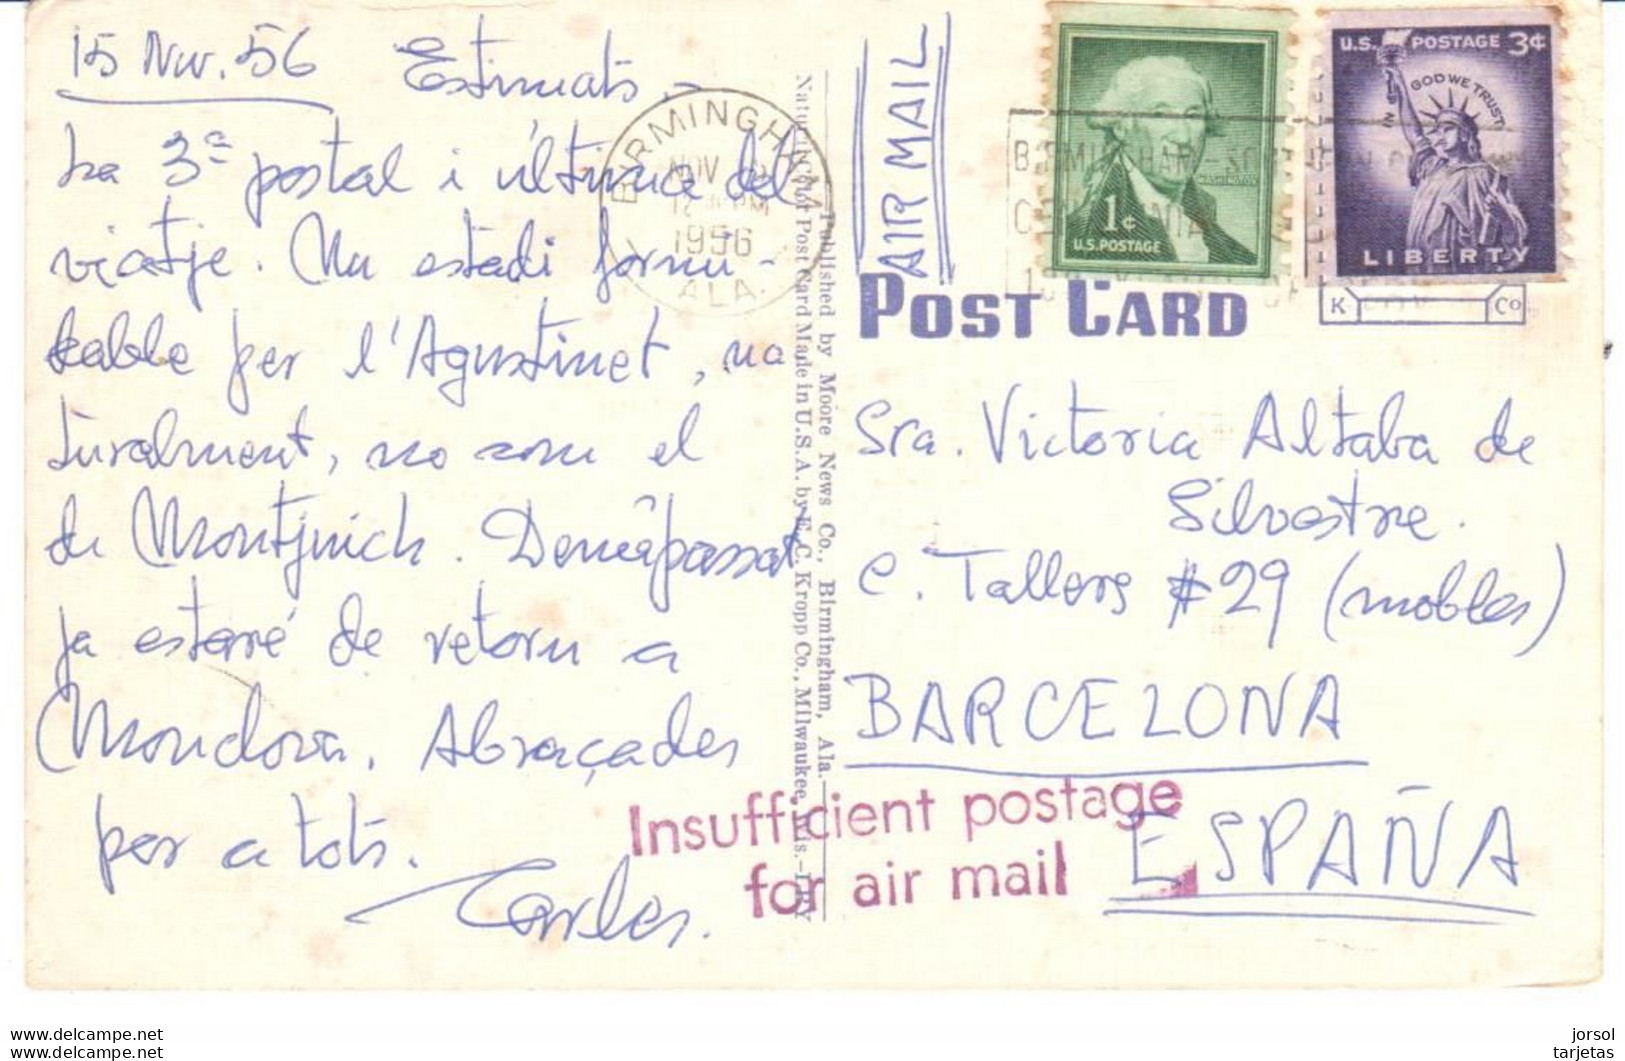 15 Nov. 56 Estimats,
La 3ª postal i última del
viatje. Un estadi formi-
dable per l'Agustinet, na
turalment, no com el
de Montjuich. Demà passat
ja estaré de retorn a
Mondova. Abraçades
per a tots.
Carles.
BIRMINGHAM
NOV
PM
1956
ALA.
Published by Moore News Co., Birmingham, Ala.—
Natural Color Post Card Made in U.S.A. by E. C. Kropp Co., Milwaukee, Wis.—
AIR MAIL
POST CARD
1¢
U.S. POSTAGE
U.S. POSTAGE 3¢
IN GOD WE TRUST
LIBERTY
K Co
Sra. Victoria Altaba de
Silvestre.
C. Tallers #29 (mobles)
BARCELONA
ESPAÑA
Insufficient postage
for air mail
www.delcampe.net
www.delcampe.net
jorsol
tarjetas